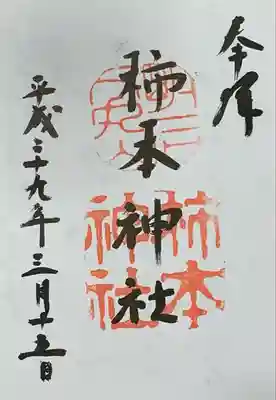 奉拝
柿本神社
柿本
神社
平成二十九年三月十五日